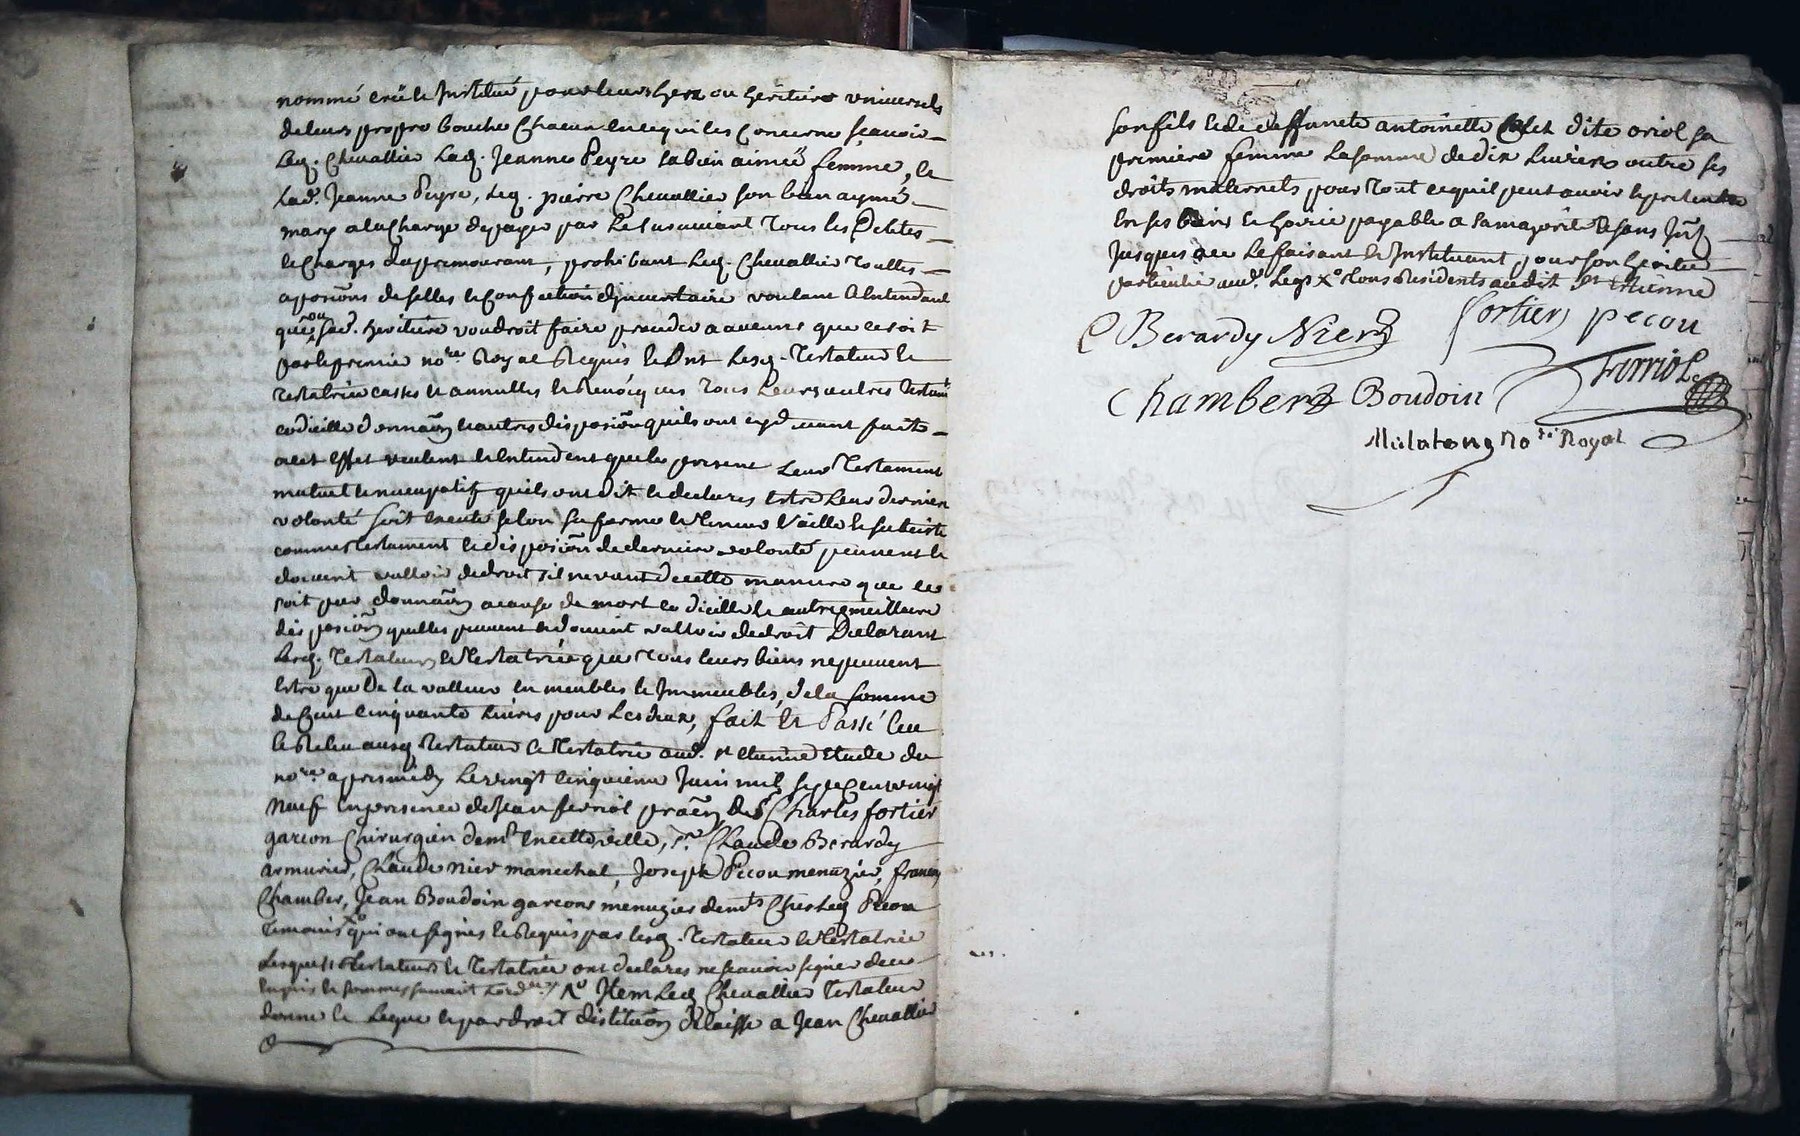 nommé créé Institué pour leurs hers ou heritiers universels
de leurs propre bouche Chacun en ce qui les Concerne sçavoir
Led. Chevallier Lad. Jeanne Peyre sa bien aimée femme, et
Lad. Jeanne Peyre, Led. pierre Chevallier son bien aymé
mary a la Charge de payer par Le survivant Tous les Debtes
et Charges du premourant, prohibant Led. Chevallier Touttes
aposions de selles et Confection d'inventaire voulant & Entendant
que sad. heritiere voudroit faire proceder a aucuns que ce soit
par le premier nore Royal Requis et Dnt Lesd. Testateur et
Testatrice cassés et annullés et Revocques Tous Leurs autres Testam
codicille donnaon et autres disposion quils ont cyd'evant faits
a cet effet veulent et Entendent que le present Leur Testament
mutuel et nuncupatif quils ont dit et declarés Estre Leur derniere
volonté soit executé selon sa forme et Teneur Vaille et subsiste
comme Testament et disposion de derniere volonté peuvent et
doivent valloir de droit sil ne vaut de cette maniere que ce
soit par donnaon a cause de mort codicille et autre meilleure
disposion quelles peuvent et doivent valloir de droit Declarant
Lesd. Testateur et Testatrice que Tous leurs biens ne peuvent
Estre que De la valleur en meubles et Immeubles, de la somme
de Cent cinquante Livres pour Les deux, fait et Passé leu
et Releu ausd. Testateur et Testatrice aud. st etienne Etude du
nore apres midy Le vingt cinquieme Juin mil sept Cent vingt
neuf En presence de Jean ferriol praen, de sr Charles fortier
garcon Chirurgien demt en cette ville, sr Claude Berardy
armurier, Claude nier marechal, Joseph Pecou menuzier, francois
Chamber, Jean Boudoin garcons menuziers demts Ches Led Pecou
Temoins xo qui ont signés et Requis par lesd. Testateur et Testatrice
Lesquels Testateur et Testatrice ont declarés ne sçavoir signer de ce
enquis et sommés suivant Lord.ce // xo Item Led Chevallier Testateur
donne et Legue et par droit distituon delaisse a Jean Chevallier
son fils et de deffuncte antoinette dite oriol sa
premiere femme La somme de dix Livres outre ses
droits maternels pour Tout ce quil peut avoir et pretendre
En ses biens et hoirie payable a sa majorité & sans Jnt
Jusques a ce Le faisant et Instituant pour son heritier
particulier aud. Legs xo Tous Residents audit st etienne
C Berardy Nier fortier pecou
Chamber Boudoin Ferriol
Mulatong nore Royal